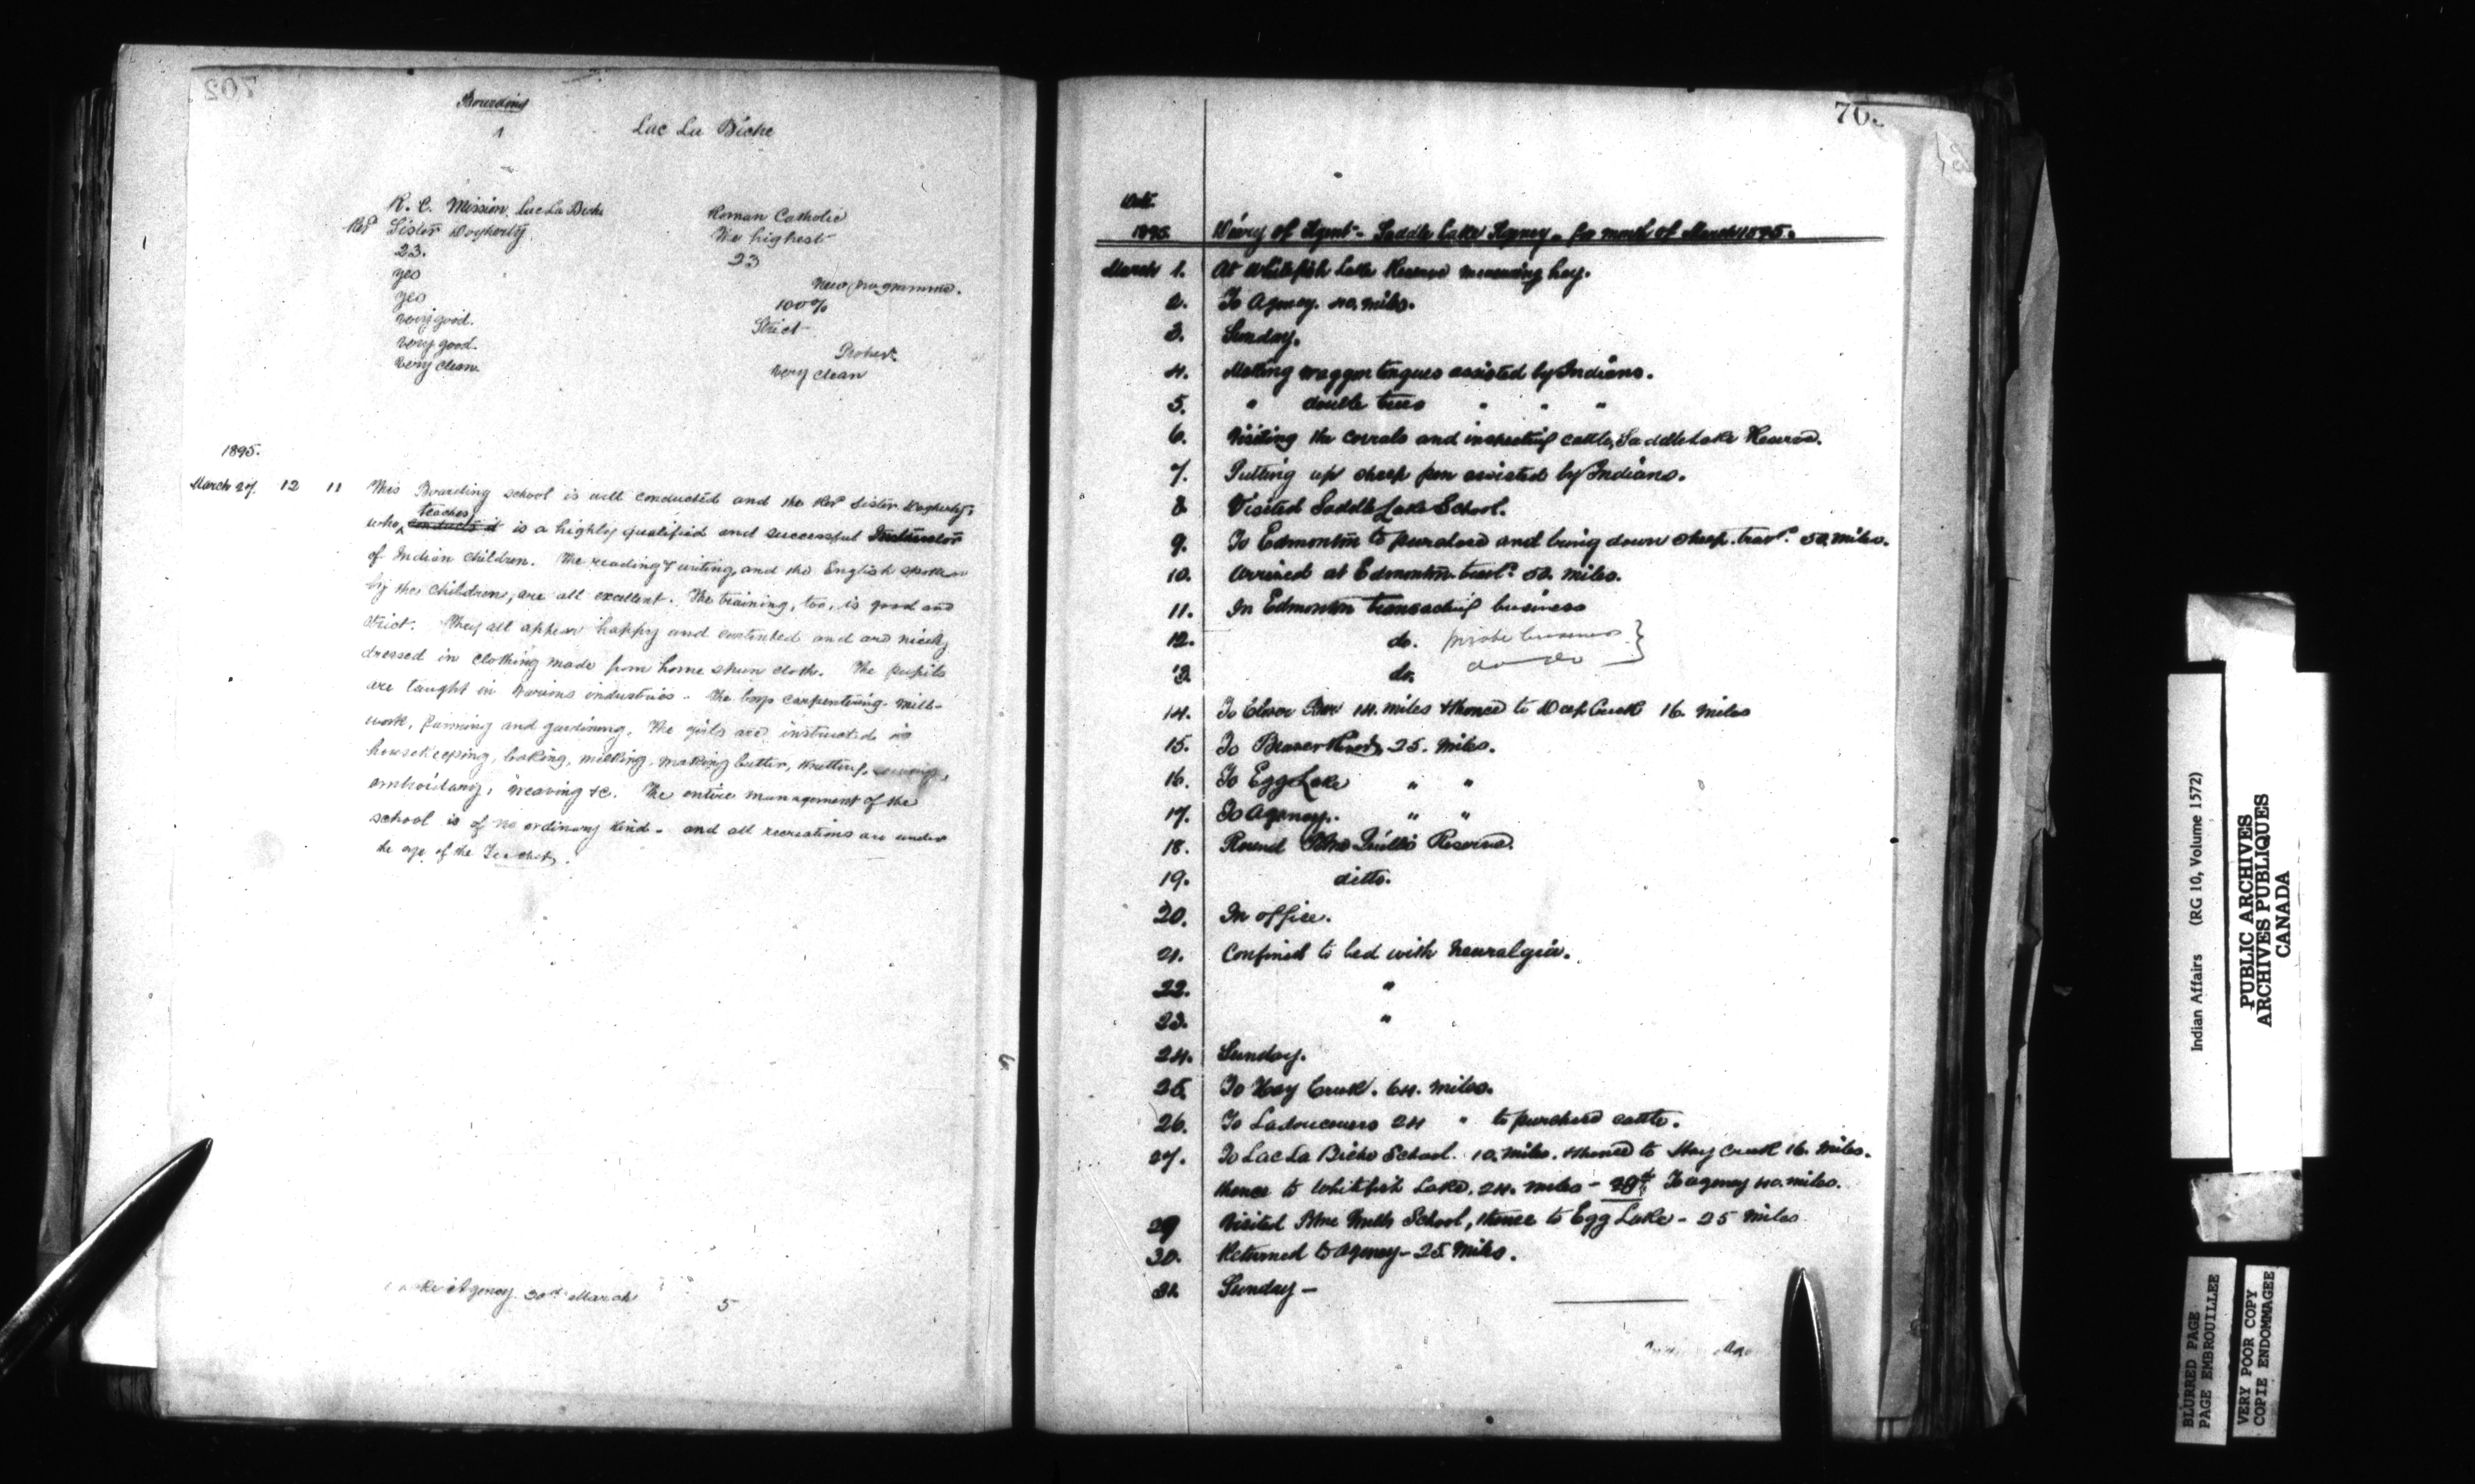 702
Boarding
1 Lac La Biche
R. C. Mission, Lac La Biche Roman Catholic
Revd Sister Dogherty. The highest
23. 23
yes New programme.
yes 100%
very good. Strict
very good.
very clean very clean
1895.
March 27. 12 11 This Boarding school is well conducted and the Revd Sister Dogherty,
who teaches conducts it is a highly qualified and successful Instructor
of Indian children. The reading & writing, and the English spoken
by the children, are all excellent. The training, too, is good and
strict. They all appear happy and contented and are nicely
dressed in clothing made from home spun cloth. The pupils
are taught in various industries. The boys carpentering, mill-
work, farming and gardining. The girls are instructed in
housekeeping, baking, milking, making butter, knitting, sewing,
embroidary, weaving &c. The entire management of the
school is of no ordinary kind - and all recreations are under
the eye of the Teacher.
Lake Agency 30th March 5
70
Date
1895. Diary of Agent - Saddle Lake Agency - for month of March 1895.
March 1. At Whitefish Lake Reserve measuring hay.
2. To Agency. 40. miles.
3. Sunday.
4. Making waggon tongues assisted by Indians.
5. " double trees " " "
6. Visiting the corrals and inspecting cattle, Saddle Lake Reserve.
7. Putting up sheep pen assisted by Indians.
8 Visited Saddle Lake School.
9. To Edmonton to purchase and bring down sheep. travd. 50. miles.
10. Arrived at Edmonton travd. 50. miles.
11. In Edmonton transacting business
12. do. private business }
13. do. do do }
14. To Clover Bar 14. miles & thence to Deep Creek 16. miles
15. To Beaver 25. miles.
16. To Egg Lake " "
17. To Agency. " "
18. Round Blue Quills Reserve.
19. ditto.
20. In office.
21. Confined to bed with neuralgia.
22. "
23. "
24. Sunday.
25. To Hay Creek. 64. miles.
26. To Ladouceurs 24 " to purchase cattle.
27. To Lac La Biche School. 10. miles. & thence to Hay Creek 16. miles.
thence to Whitefish Lake. 24. miles - 28th. To agency 40. miles.
29 Visited Blue Quills School, thence to Egg Lake - 25 miles
30. Returned to Agency - 25. miles.
31. Sunday -
Indian Affairs (RG 10, Volume 1572)
PUBLIC ARCHIVES
ARCHIVES PUBLIQUES
CANADA
BLURRED PAGE
PAGE EMBROUILLEE
VERY POOR COPY
COPIE ENDOMMAGEE